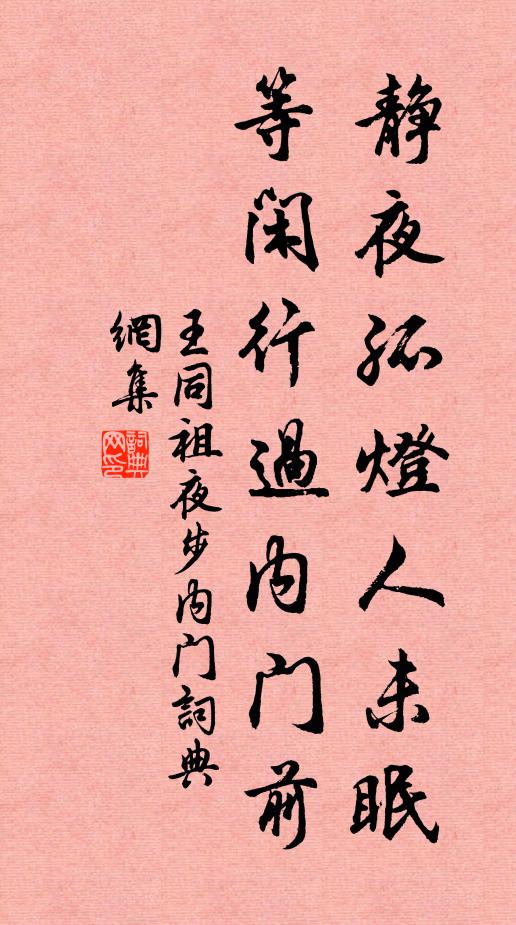 静夜孤燈人未眠
等閑行過内門前
王同祖夜步内门詞典
網集
詞典
网印